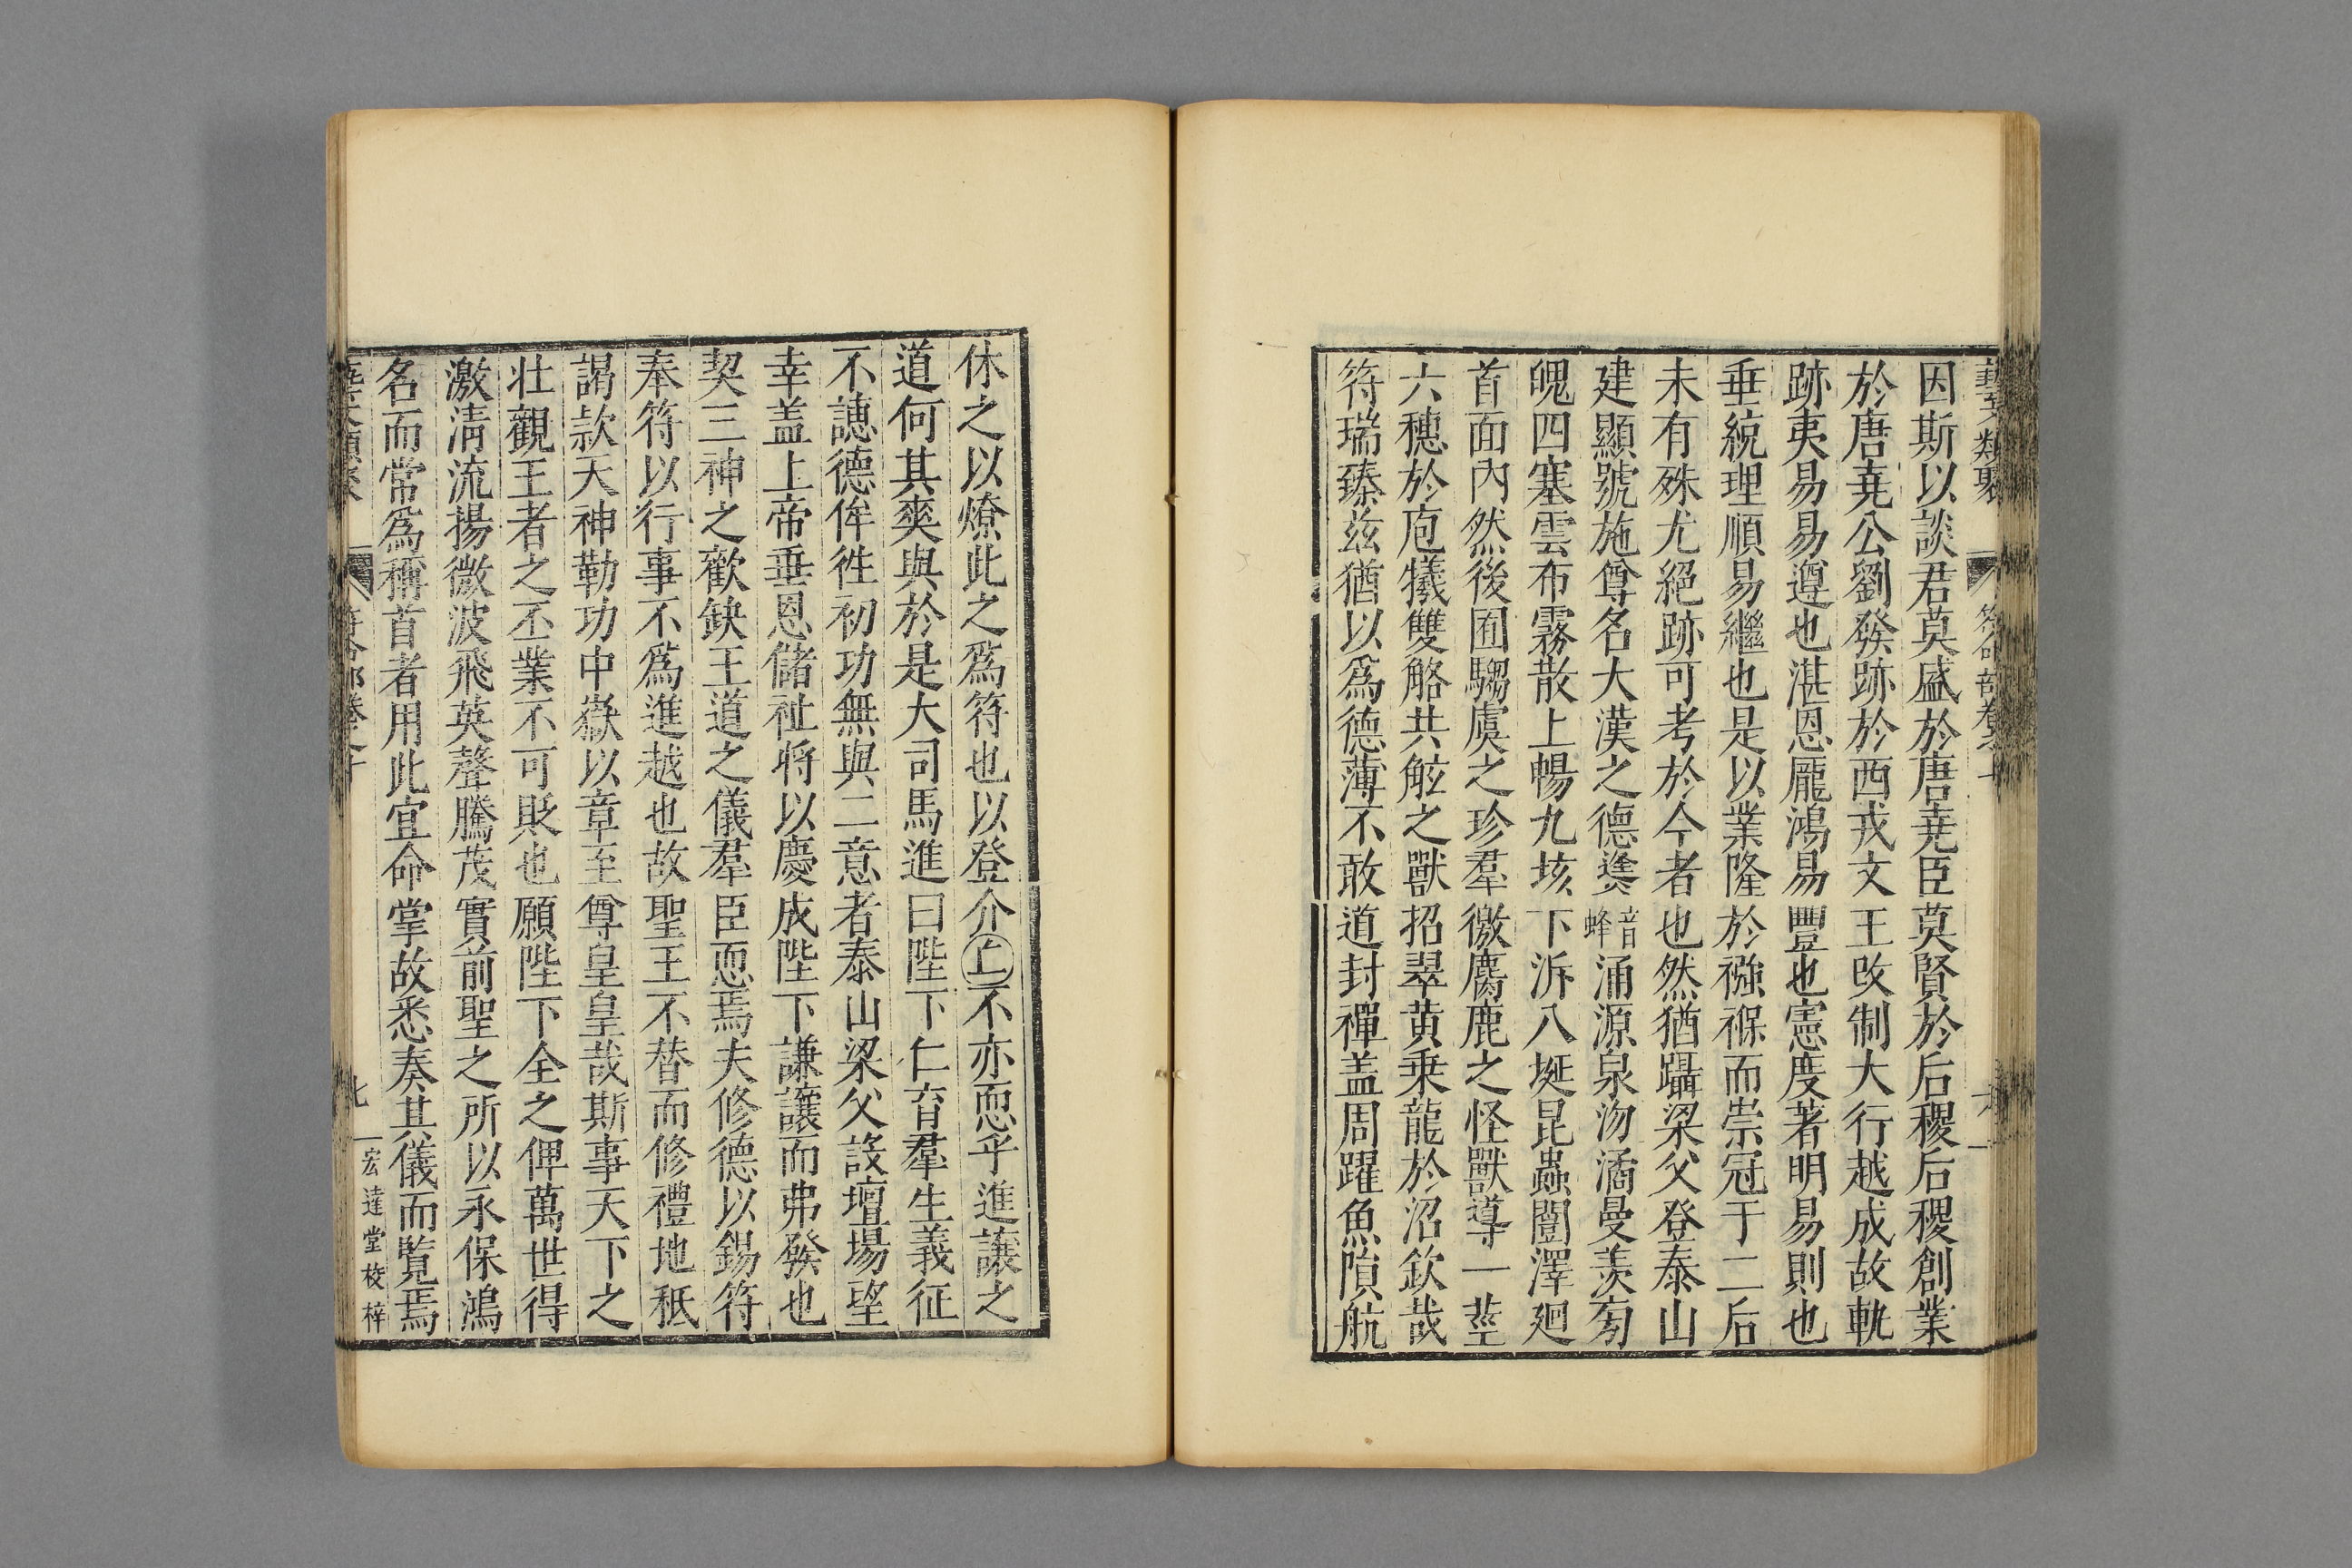 藝文類聚 符命部卷之十 六
因斯以談君莫盛於唐尭臣莫賢於后稷后稷創業
於唐尭公劉發跡於西戎文王攺制大行越成故軌
跡夷易易遵也湛恩厖鴻易豐也憲度著明易則也
垂統理順易繼也是以業隆於襁褓而崇冠于二后
未有殊尤絕跡可考於今者也然猶躡梁父登泰山
建顯號施尊名大漢之德逢音蜂涌源泉沕潏曼羨旁
魄四塞雲布霧散上暢九垓下泝八埏昆蟲闓澤廻
首面內然後囿騶虞之珍羣徼麏鹿之怪獸導一莖
六穗於庖犧雙觡共觝之獸招翠黃乗龍於沼欽哉
符瑞臻茲猶以爲德薄不敢道封禪盖周躍魚隕航
休之以燎此之爲符也以登介丘不亦恧乎進讓之
道何其爽與於是大司馬進曰陛下仁育羣生義征
不譓德侔徃初功無與二意者泰山梁父設壇場望
幸盖上帝垂恩儲祉將以慶成陛下謙讓而弗發也
契三神之歡缺王道之儀羣臣恧焉夫修德以錫符
奉符以行事不爲進越也故聖王不替而修禮地秪
謁款天神勒功中嶽以章至尊皇皇哉斯事天下之
壮觀王者之丕業不可貶也願陛下全之俾萬世得
激淸流揚微波飛英聲騰茂實前聖之所以永保鴻
名而常爲稱首者用此宜命掌故悉奏其儀而覽焉
藝文類聚 符命部卷之十 七 宏達堂校梓